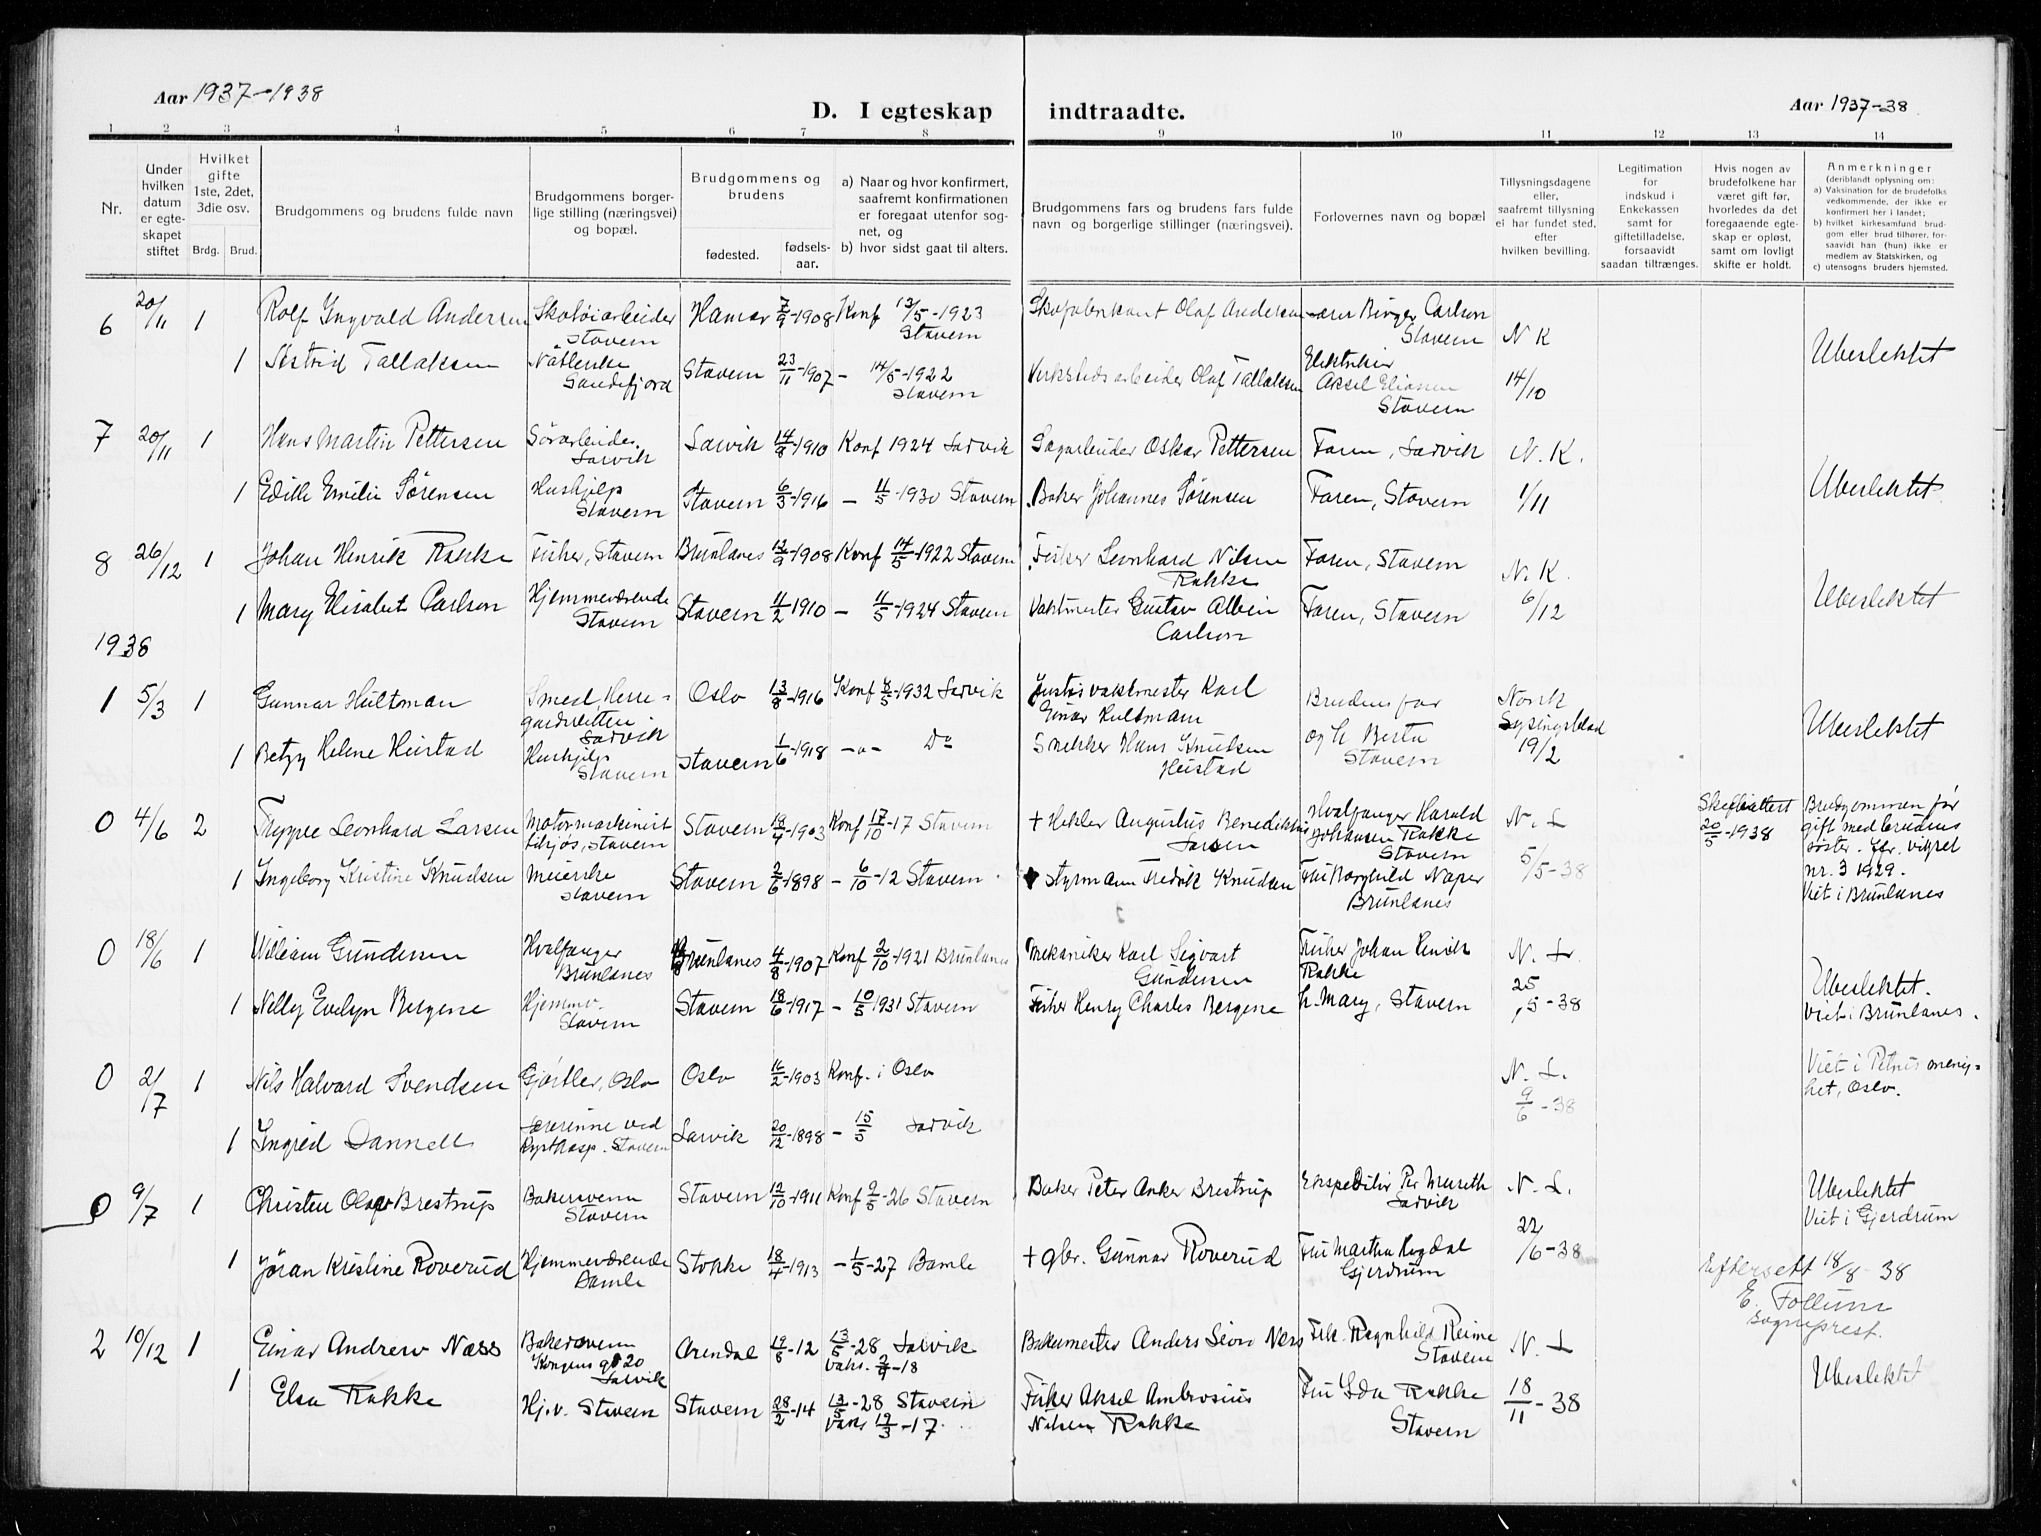 Aar 1937-1938
D. I egteskap indtraadte.
Aar 1937-38
1 2 3 4 5 6 7 8 9 10 11 12 13 14
Nr.
Under hvilken datum er egteskapet stiftet
Hvilket gifte 1ste, 2det, 3die osv.
Brdg. Brud.
Brudgommens og brudens fulde navn
Brudgommens borgerlige stilling (næringsvei) og bopæl.
Brudgommens og brudens
fødested.
fødsels-aar.
a) Naar og hvor konfirmert, saafremt konfirmationen er foregaat utenfor sognet, og
b) hvor sidst gaat til alters.
Brudgommens fars og brudens fars fulde navn og borgerlige stillinger (næringsvei).
Forlovernes navn og bopæl
Tillysningsdagene eller, saafremt tillysning ei har fundet sted, efter hvilken bevilling.
Legitimation for indskud i Enkekassen samt for giftetilladelse, forsaavidt saadan tiltrænges.
Hvis nogen av brudefolkene har været gift før, hvorledes da det foregaaende egteskap er opløst, samt om lovligt skifte er holdt.
Anmerkninger
(deriblandt oplysning om:
a) Vaksination for de brudefolks vedkommende, der ikke er konfirmert her i landet;
b) hvilket kirkesamfund brudgom eller brud tilhører, forsaavidt han (hun) ikke er medlem av Statskirken, og
c) utensogns bruders hjemsted.
6 20/11 1 Rolf Ingvald Andersen Skotøiarbeider Stavern Hamar 7/9-1908 Konf 13/5-1923 Stavern Skofabrikant Olaf Andersen Birger Carlson Stavern N K
1 Astrid Tallaksen Sandefjord Stavern 23/11-1907 - 14/5-1922 Stavern Verkstedsarbeider Olaf Tallaksen Elektriker Aksel Eliassen Stavern 14/10 Ubeslektet
7 20/11 1 Hans Martin Pettersen Larvik Larvik 14/8-1910 Konf 1924 Larvik Sagarbeider Oskar Pettersen Faren, Larvik N. K.
1 Edith Emilie Sørensen Hushjelp Stavern Stavern 6/3-1916 - 11/5-1930 Stavern Baker Johannes Sørensen Faren, Stavern 1/11 Ubeslektet
8 26/12 1 Johan Henrik Rakke Fisker, Stavern Brunlanes 12/9-1908 Konf 14/5-1922 Stavern Fisker Leonhard Nilsen Rakke Faren, Stavern N. K.
1 Mary Elisabet Carlson Hjemmeværende Stavern Stavern 11/2 1910 - 11/5-1924 Stavern Vaktmester Gustav Albin Carlson Faren, Stavern 6/12 Ubeslektet
1938
1 5/3 1 Gunnar Hultman Smed, Herregårdsletten Larvik Oslo 13/8-1916 Konf /5-1932 Larvik Justisvaktmester Karl Einar Hultmann Brudens far Norsk Lysingsblad
1 Betzy Helene Heistad Hushjelp Stavern Stavern 1/6-1918 -o- Do Snekker Hans Knudsen Heistad og h. Berta Stavern 19/2 Ubeslektet
0 4/6 2 Tryggve Leonhard Larsen Motormaskinist tilsjøs, Stavern Stavern 18/4-1903 Konf 17/10-17 Stavern + Hekler Augustus Benediktus Larsen Hvalfanger Harald Johansen Rakke Stavern N. L Skifteattest 20/5-1938 Brudgommen før gift med brudens søster. Jfr. vigsel nr. 3 1929. Viet i Brunlanes
1 Ingeborg Kristine Knudsen Meierske Stavern Stavern 2/6-1898 - 6/10-12 Stavern Styrmann Fredrik Knudsen Fru Borghild Naper Brunlanes 5/5-38
0 18/6 1 William Gundersen Hvalfanger Brunlanes Brunlanes 4/8-1907 Konf 2/10-1921 Brunlanes Mekaniker Karl Sigvart Gundersen Fisker Johan Henrik Rakke N. L.
1 Nelly Evelyn Bergene Hjemmv. Stavern Stavern 18/6-1917 - 10/5 1931 Stavern Fisker Henry Charles Bergene h. Mary, Stavern 25/5-38 Ubeslektet. Viet i Brunlanes.
0 2/7 1 Nils Halvard Svendsen Gjørtler, Oslo Oslo 16/2-1903 Konf. i Oslo N. L. 9/6-38 Viet i Petrus menighet, Oslo.
1 Ingrid Dannell Lærerinne ved Stavern Larvik 20/12-1898 - 15/5 Larvik
0 9/7 1 Christen Olav Brestrup Bakersvenn Stavern Stavern 12/10-1911 Konf 9/5-26 Stavern Baker Peter Anker Brestrup Ekspeditør Per Mureth Larvik N. L. Ubeslektet Viet i Gjerdrum
1 Jøran Kristine Roverud Hjemmeværende Bamle Stokke 18/4-1913 - 1/5-27 Bamle + gbr. Gunnar Roverud Fru Martha Rogdal Gjerdrum 22/6-38
Eftersett 18/8-38
E. Follum
Sogneprest.
2 10/12 1 Einar Andrew Næss Bakersvenn Kongens gt 20 Larvik Arendal 19/8-12 13/5-28 Larvik Vaks. 2/9-18 Bakermester Anders Sivon Næss Frk. Ragnhild Reime Stavern N. L
1 Elsa Rakke Hj.v. Stavern Stavern 28/2-14 13/5-28 Stavern Vaks 19/3-17. Fisker Aksel Ambrosius Nilsen Rakke Fru Ida Rakke Stavern 18/11-38 Ubeslektet